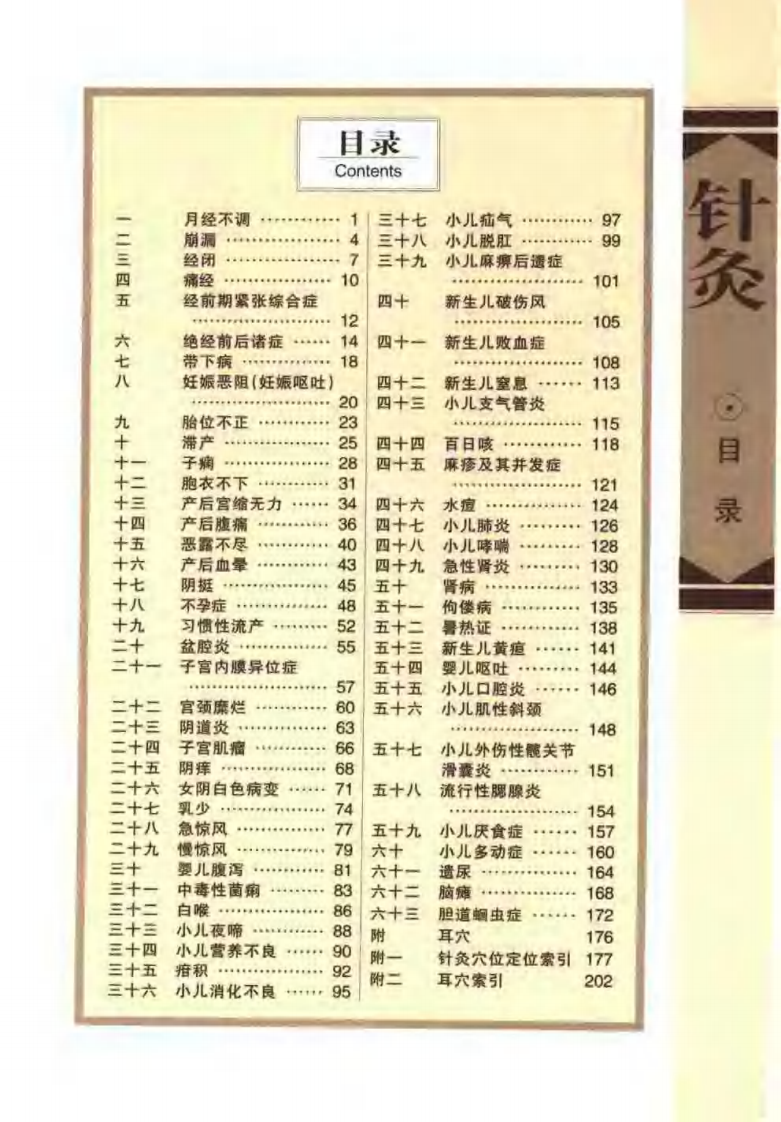 目录
Contents
一 月经不调 ………… 1
二 崩漏 ………… 4
三 经闭 ………… 7
四 痛经 ………… 10
五 经前期紧张综合症
………… 12
六 绝经前后诸症 …… 14
七 带下病 ………… 18
八 妊娠恶阻(妊娠呕吐)
………… 20
九 胎位不正 ………… 23
十 滞产 ………… 25
十一 子痫 ………… 28
十二 胞衣不下 ………… 31
十三 产后宫缩无力 …… 34
十四 产后腹痛 ………… 36
十五 恶露不尽 ………… 40
十六 产后血晕 ………… 43
十七 阴挺 ………… 45
十八 不孕症 ………… 48
十九 习惯性流产 ……… 52
二十 盆腔炎 ………… 55
二十一 子宫内膜异位症
………… 57
二十二 宫颈糜烂 ………… 60
二十三 阴道炎 ………… 63
二十四 子宫肌瘤 ………… 66
二十五 阴痒 ………… 68
二十六 女阴白色病变 …… 71
二十七 乳少 ………… 74
二十八 急惊风 ………… 77
二十九 慢惊风 ………… 79
三十 婴儿腹泻 ………… 81
三十一 中毒性菌痢 ……… 83
三十二 白喉 ………… 86
三十三 小儿夜啼 ………… 88
三十四 小儿营养不良 …… 90
三十五 疳积 ………… 92
三十六 小儿消化不良 …… 95
三十七 小儿疝气 ………… 97
三十八 小儿脱肛 ………… 99
三十九 小儿麻痹后遗症
………… 101
四十 新生儿破伤风
………… 105
四十一 新生儿败血症
………… 108
四十二 新生儿窒息 …… 113
四十三 小儿支气管炎
………… 115
四十四 百日咳 ………… 118
四十五 麻疹及其并发症
………… 121
四十六 水痘 ………… 124
四十七 小儿肺炎 ……… 126
四十八 小儿哮喘 ……… 128
四十九 急性肾炎 ……… 130
五十 肾病 ………… 133
五十一 佝偻病 ………… 135
五十二 暑热证 ………… 138
五十三 新生儿黄疸 …… 141
五十四 婴儿呕吐 ……… 144
五十五 小儿口腔炎 …… 146
五十六 小儿肌性斜颈
………… 148
五十七 小儿外伤性髋关节
滑囊炎 ………… 151
五十八 流行性腮腺炎
………… 154
五十九 小儿厌食症 …… 157
六十 小儿多动症 …… 160
六十一 遗尿 ………… 164
六十二 脑瘫 ………… 168
六十三 胆道蛔虫症 …… 172
附 耳穴 176
附一 针灸穴位定位索引 177
附二 耳穴索引 202
针灸
目录